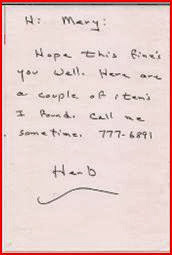 Hi Mary:
Hope this fine's
you well. Here are
a couple of iten's
I found. Call me
sometime. 777-6891
Herb